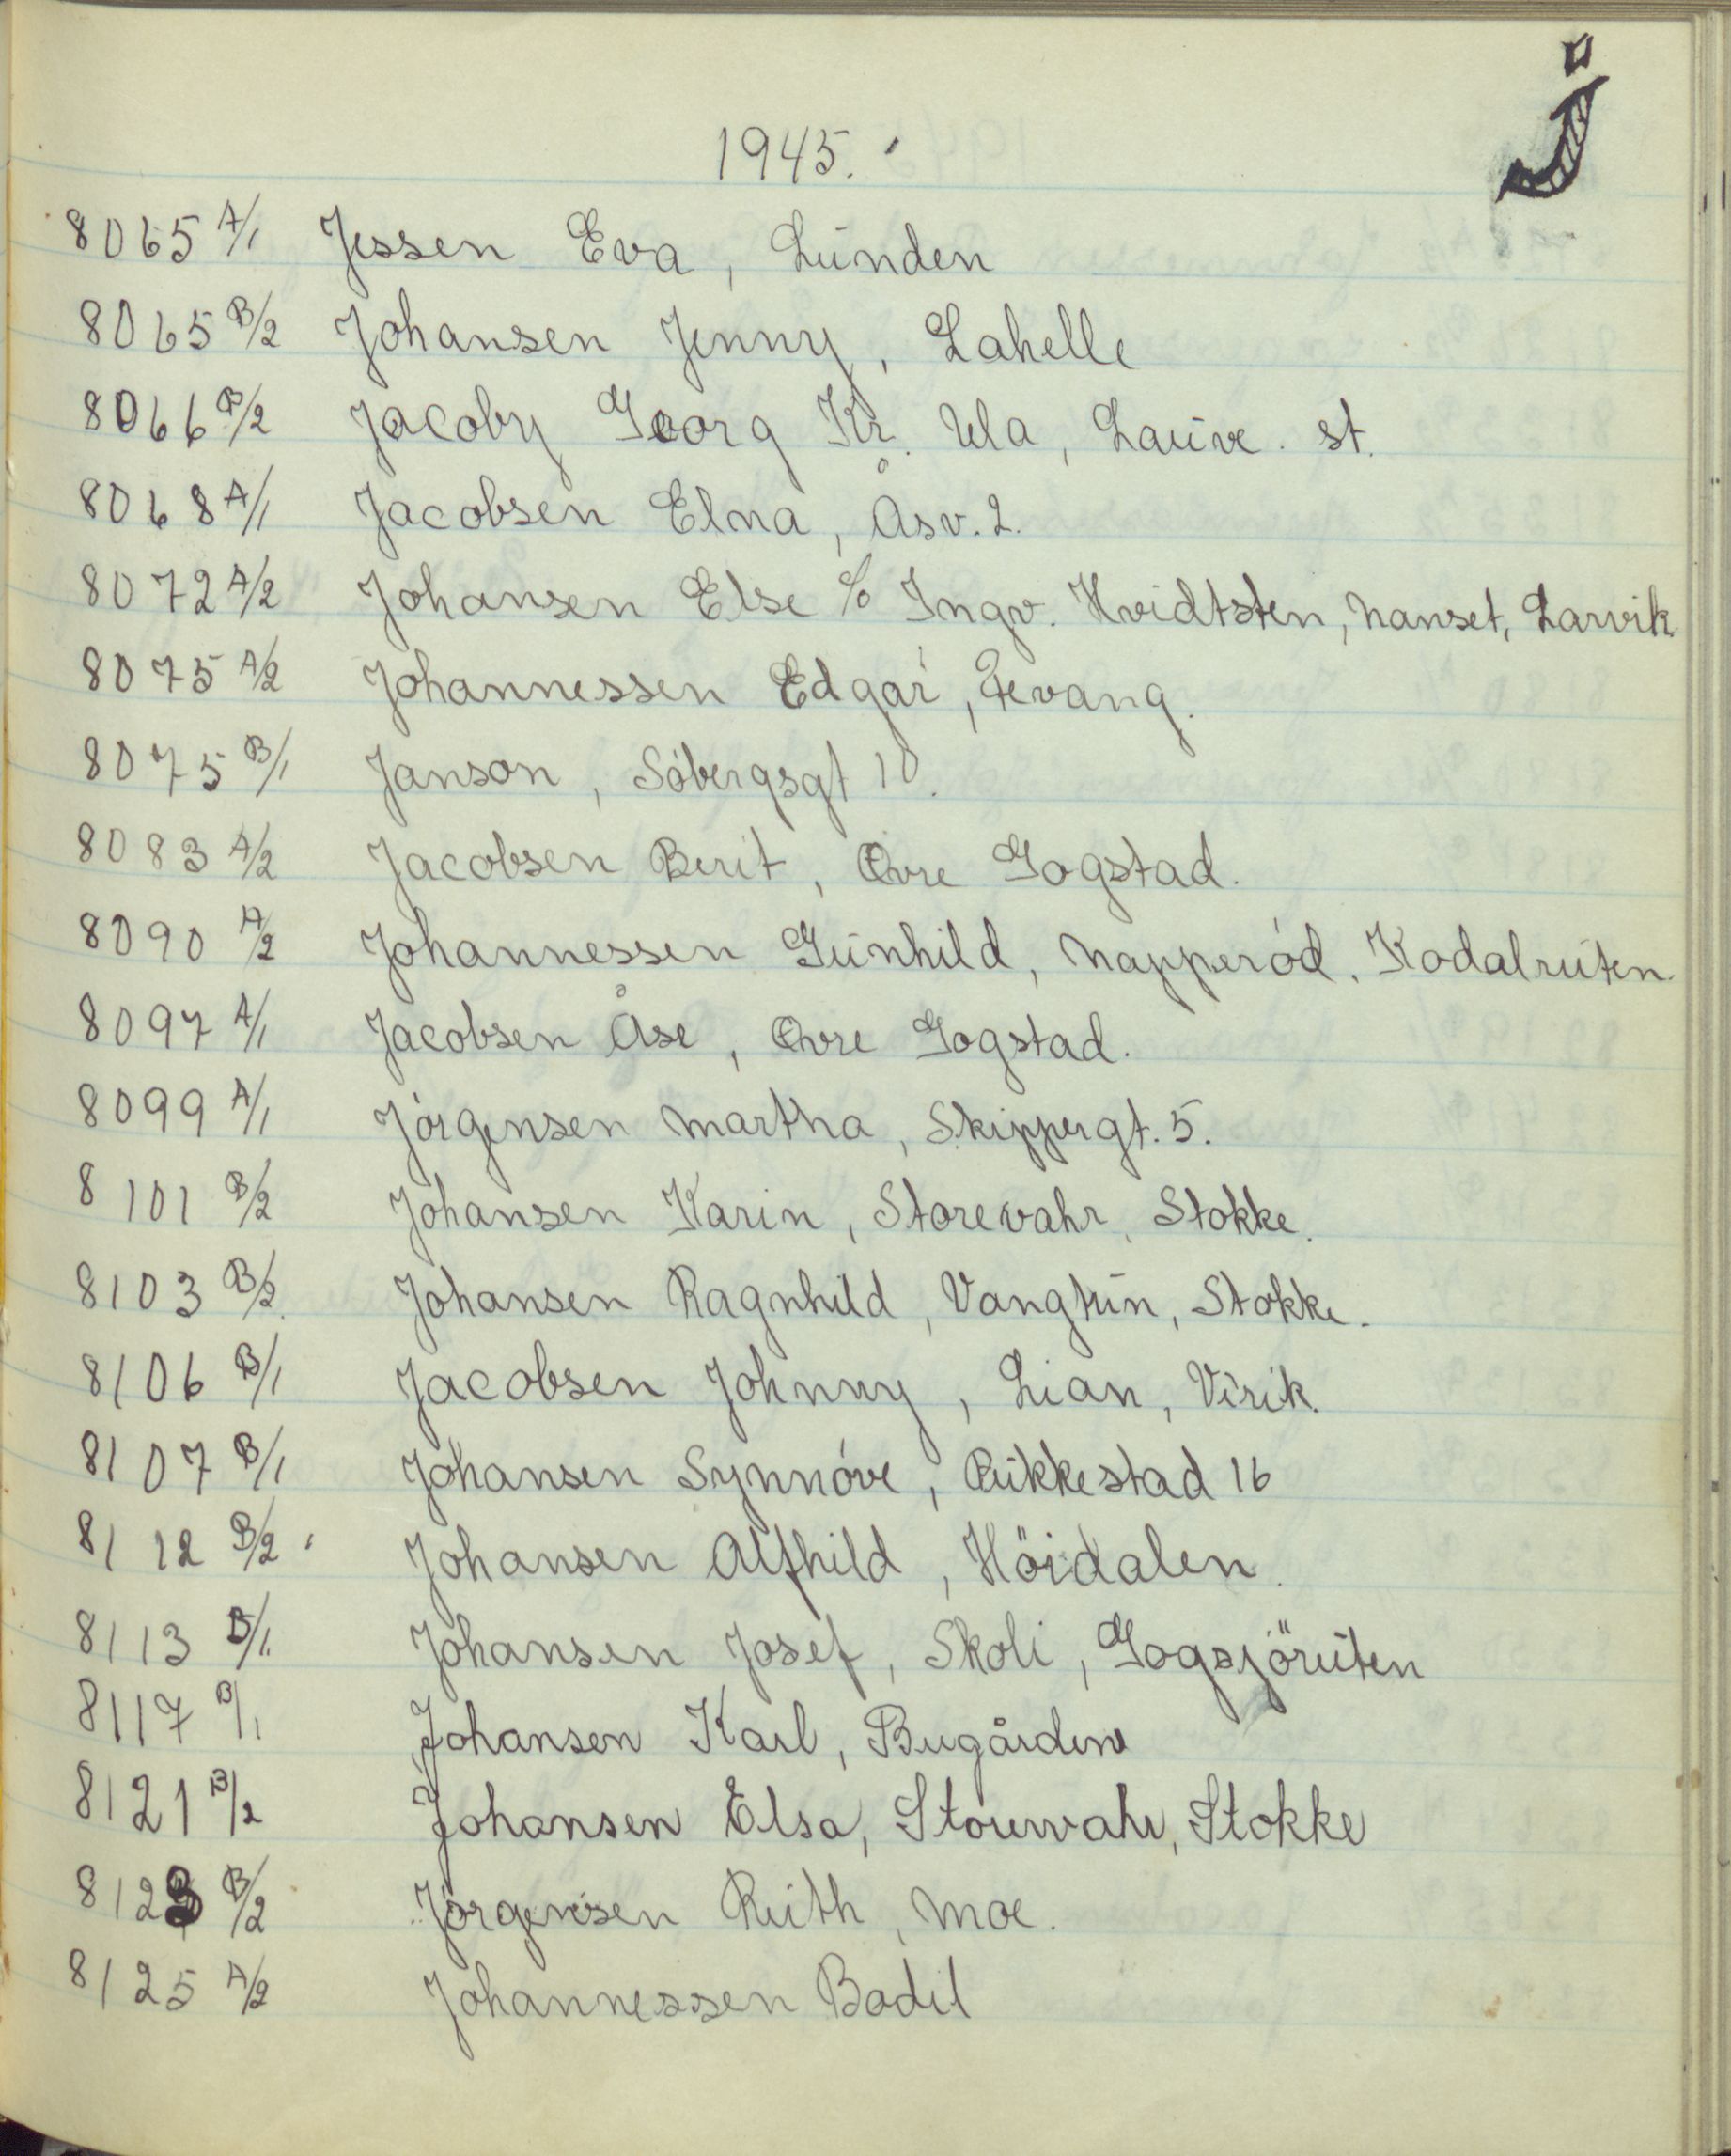 J
1945.
8065 A/1 Jessen Eva, Lunden
8065 B/2 Johansen Jenny, Lahelle
8066 B/2 Jacoby Georg Kr. Ula, Lauve. st.
8068 A/1 Jacobsen Elna, Åsv. 2.
8072 A/2 Johansen Else c/o Ingv. Hvidtsten, Nanset, Larvik
8075 A/2 Johannessen Edgar, Fevang.
8075 B/1 Janson, Sóbergsgt 10.
8083 A/2 Jacobsen Berit, Øvre Gogstad.
8090 A/2 Johannessen Gunhild, Napperód, Kodalruten.
8097 A/1 Jacobsen Åse, Øvre Gogstad.
8099 A/1 Jórgensen Martha, Skippergt. 5.
8101 B/2 Johansen Karin, Storevahr, Stokke.
8103 B/2 Johansen Ragnhild, Vangtun, Stokke.
8106 B/1 Jacobsen Johnny, Lian, Virik.
8107 B/1 Johansen Synnóve, Bukkestad 16
8112 B/2 Johansen Alfhild, Höidalen.
8113 B/1 Johansen Josef, Skoli, Gogsjöruten
8117 B/1 Johansen Karl, Bugården
8121 B/2 Johansen Elsa, Storevahr, Stokke
8123 B/2 Jörgensen Ruth, Moe.
8125 A/2 Johannessen Bodil